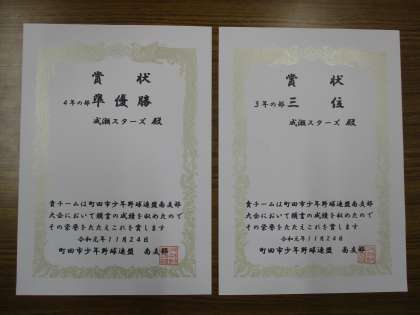 賞状
4年の部 準優勝
成瀬スターズ 殿
貴チームは町田市少年野球連盟南支部
大会において頭書の成績を収めたので
その栄誉をたたえこれを賞します
令和元年11月24日
町田市少年野球連盟 南支部
賞状
3年の部 三位
成瀬スターズ 殿
貴チームは町田市少年野球連盟南支部
大会において頭書の成績を収めたので
その栄誉をたたえこれを賞します
令和元年11月24日
町田市少年野球連盟 南支部